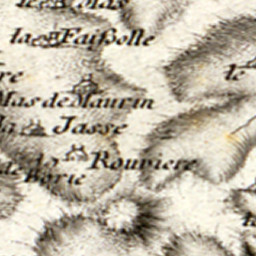 le Mas
la Faißolle
re
le
Mas de Maurin
la Jasse
la Rouviere
de Borie